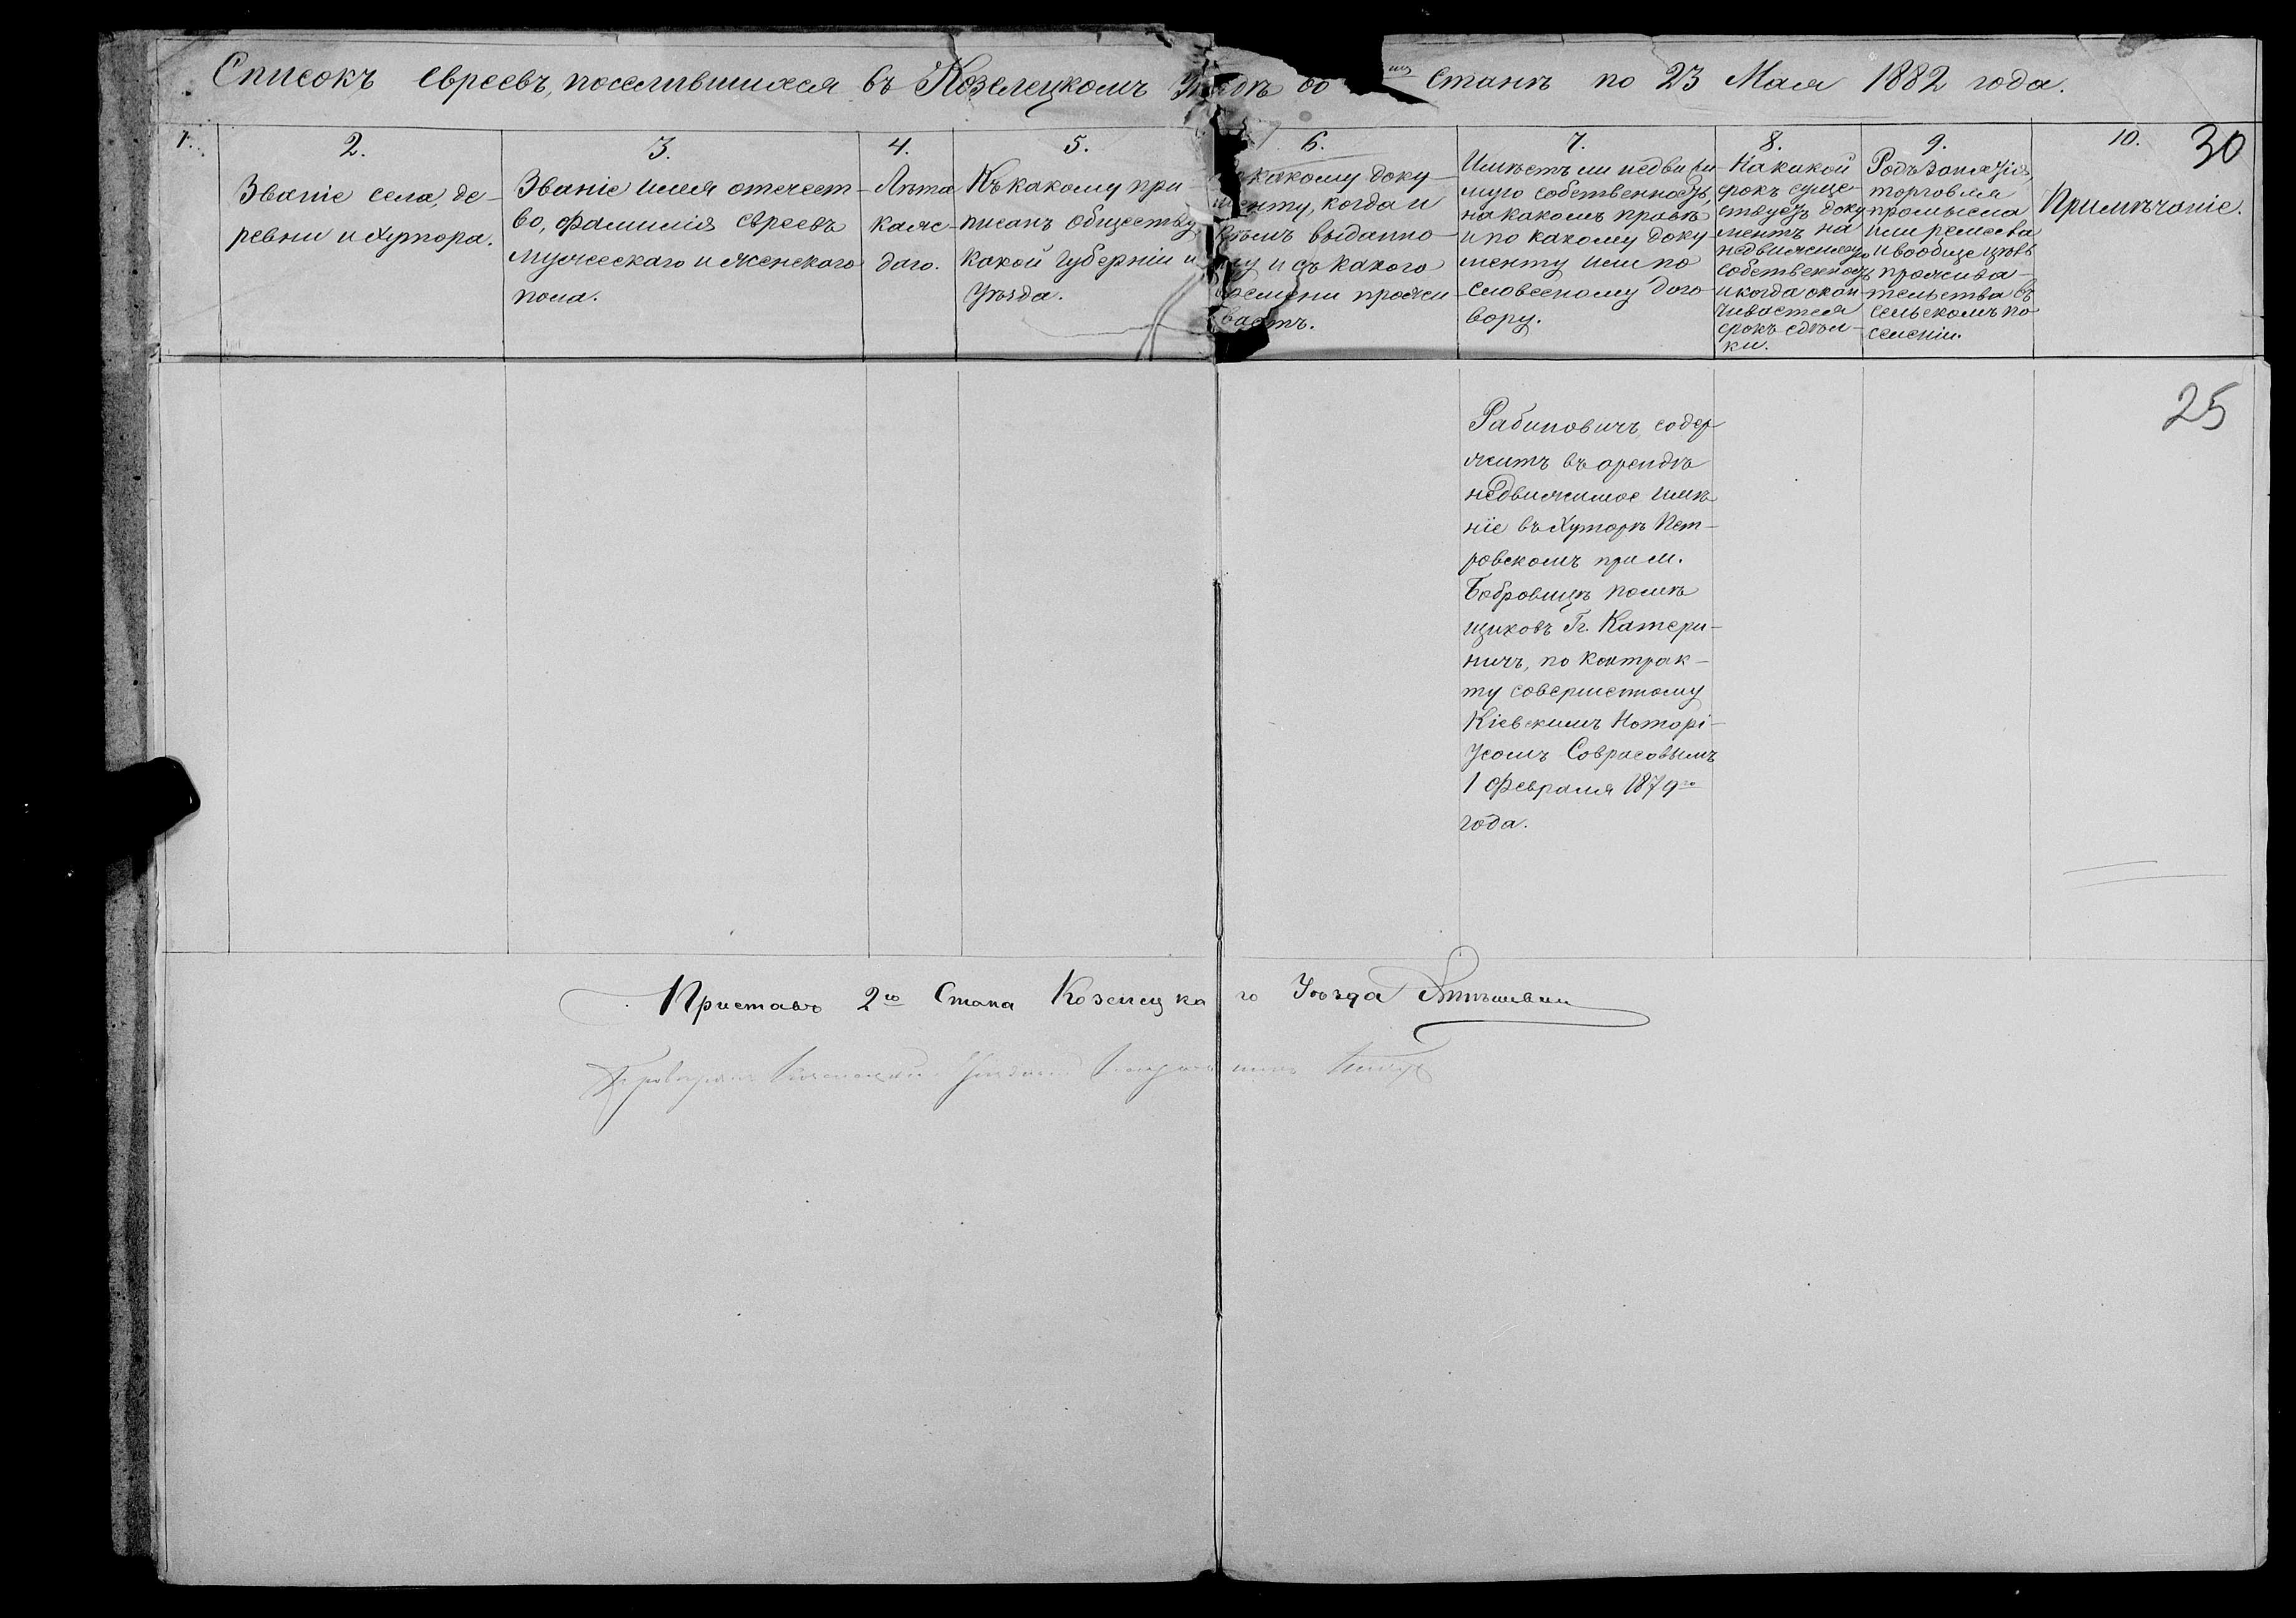 Списокъ евреевъ, поселившихся въ Козелецкомъ Уѣздѣ во станѣ по 23 Мая 1882 года.
1.
2.
3.
4.
5.
6.
7.
8.
9.
10.
30
Званіе села, де-
ревни и хутора.
Званіе имя отечест-
во, фамилія евреевъ
мужескаго и женского
пола.
Лѣта
кажс-
даго.
Къ какому при-
писанъ обществу
какой Губерніи и
Уѣзда.
какому доку-
менту, когда и
кѣмъ выданно-
му и съ какого
времени прожи-
ваетъ.
Имѣетъ ли недвижи
мую собственность,
на какомъ правѣ
и по какому доку-
менту или по
словесному дого-
вору.
На какой
срокъ суще-
ствуетъ доку
ментъ на
недвижимую
собственность
и когда окан-
чивается
срокъ сдѣл-
ки.
Родъ занятія,
торговля
промысла
или ремесва
и вообще цѣль
прожива-
тельства въ
сельскомъ по
селеніи.
Примѣчаніе.
25
Рабиновичъ, содер
житъ въ арендѣ
недвижимое имѣ
ніе въ хуторѣ Пет-
ровскомъ при м.
Бобровицѣ помѣ
щиковъ Гг. Катери-
ничъ, по контрак-
ту совершенному
Кіевскимъ Нотарі-
усомъ Соврасовымъ
1 Февраля 1879го
года.
Приставъ 2го Стана Козелецкаго Уѣзда